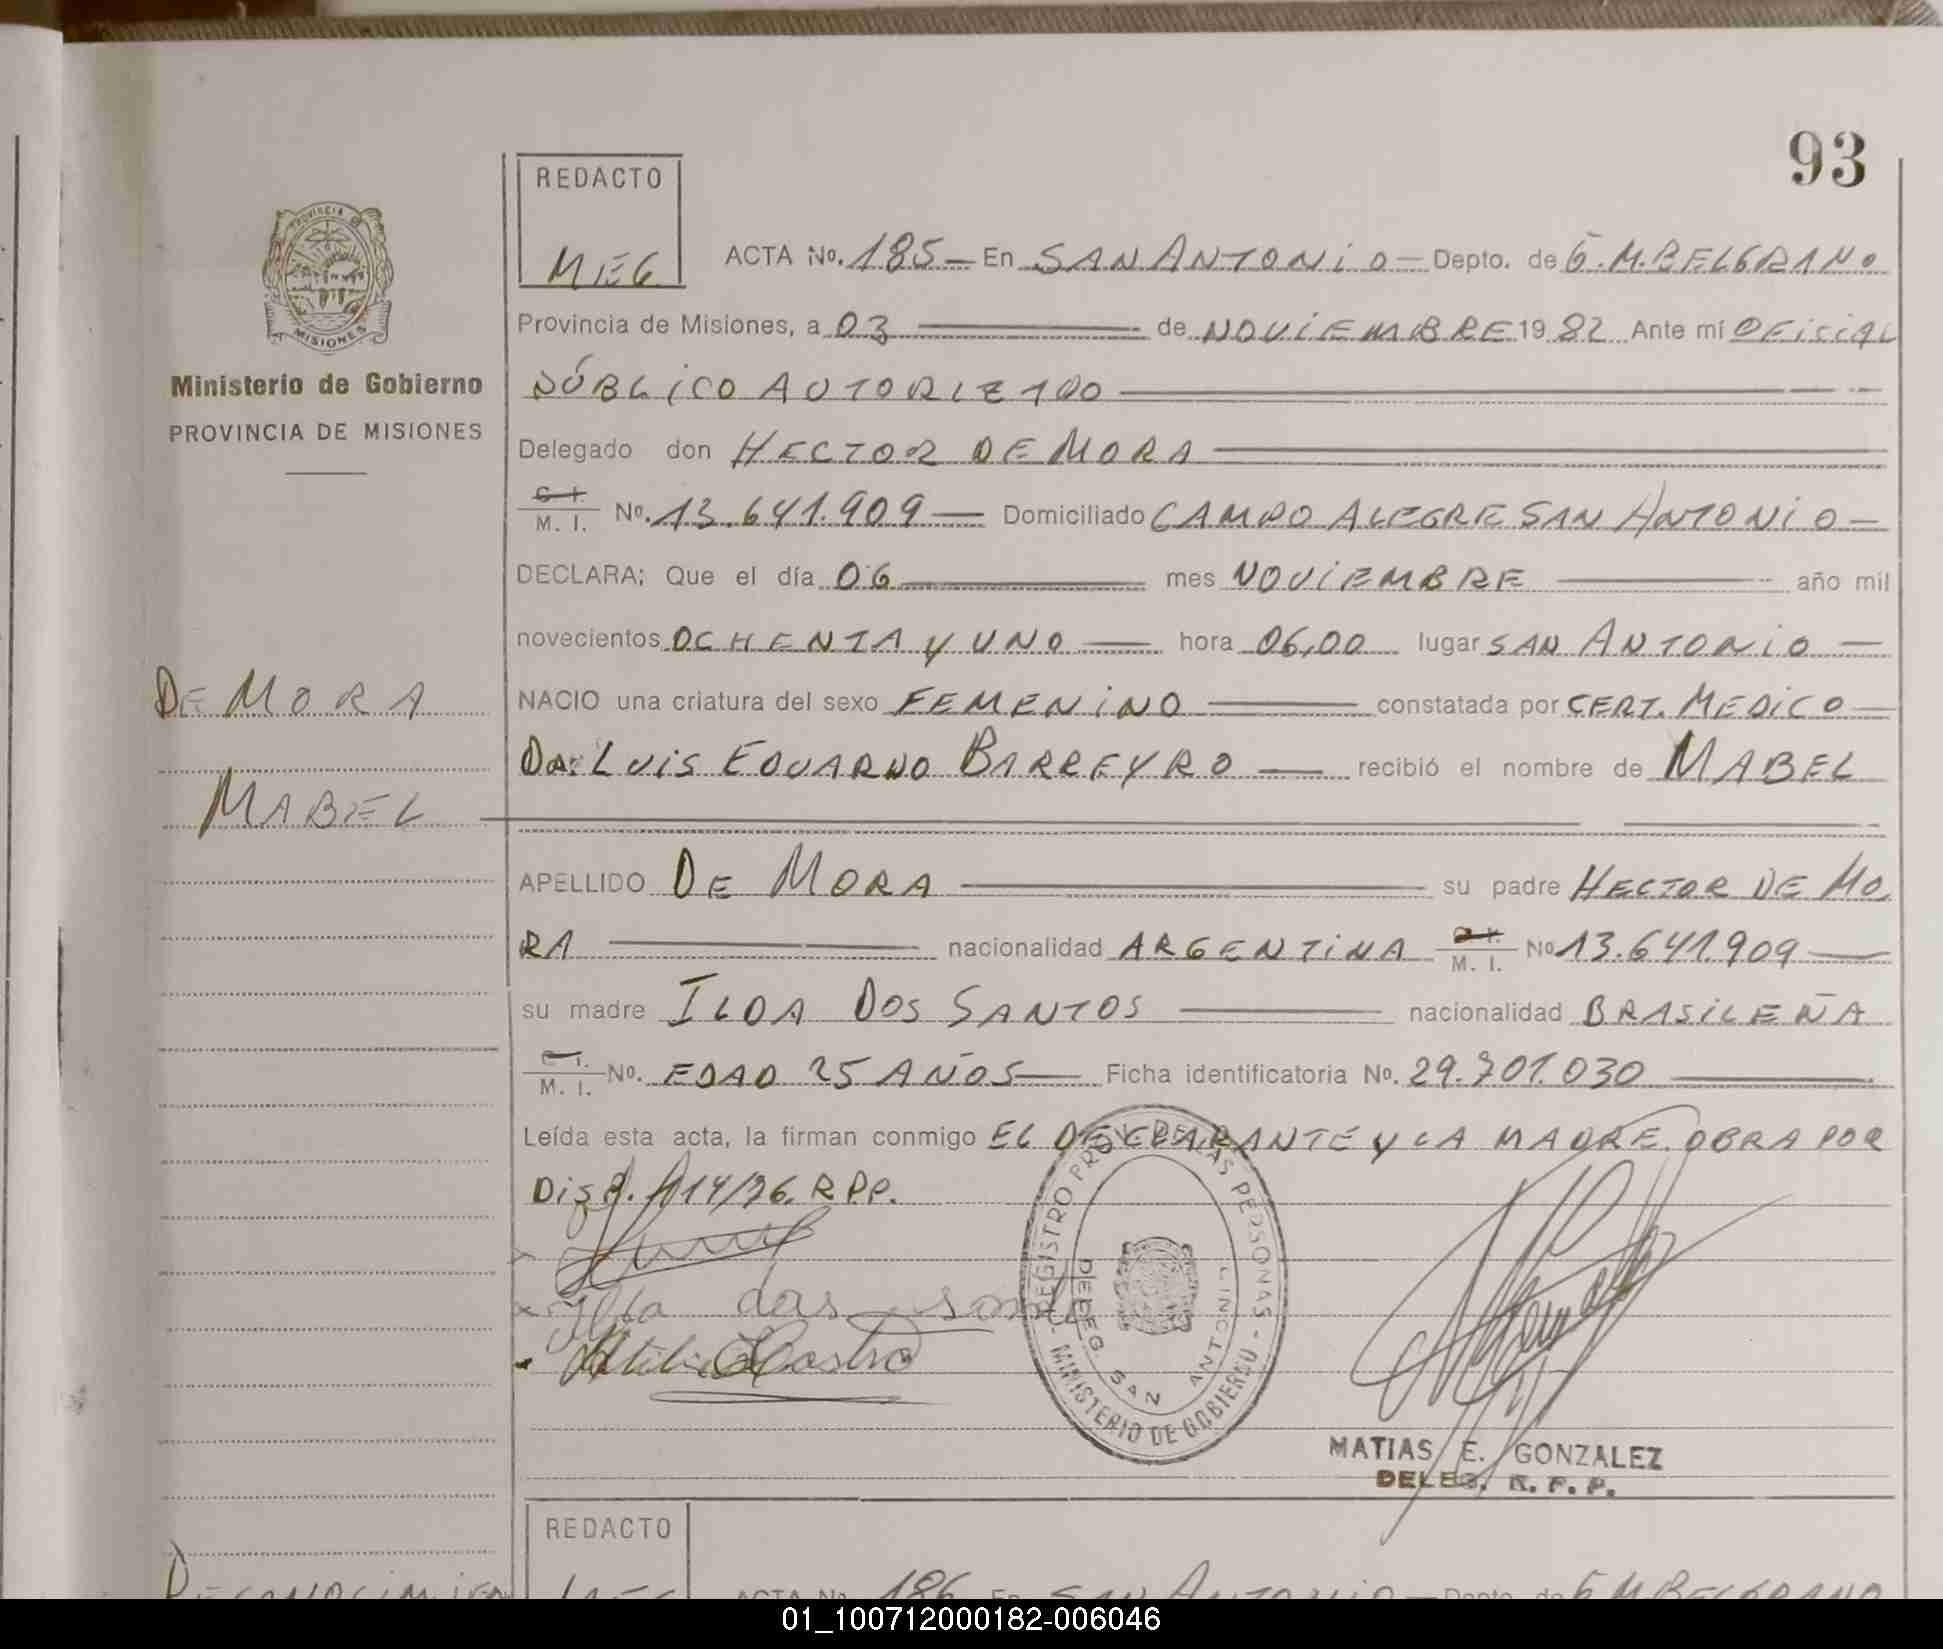 93
REDACTO
MEG
ACTA No. 185 — En SAN ANTONIO — Depto. de G. M. BELGRANO
Provincia de Misiones, a 03 — de NOVIEMBRE 1982 Ante mí OFICIAL
PÚBLICO AUTORIZADO
Ministerio de Gobierno
PROVINCIA DE MISIONES
PROVINCIA DE MISIONES
Delegado don HECTOR DE MORA
C. I. M. I. No. 13.641.909 — Domiciliado CAMPO ALEGRE SAN ANTONIO —
DECLARA: Que el día 06 — mes NOVIEMBRE — año mil
novecientos OCHENTA Y UNO — hora 06,00 lugar SAN ANTONIO —
DE MORA
MABEL
NACIO una criatura del sexo FEMENINO — constatada por CERT. MEDICO —
DR. LUIS EDUARDO BARREYRO — recibió el nombre de MABEL
APELLIDO DE MORA — su padre HECTOR DE MO
RA — nacionalidad ARGENTINA C. I. M. I. No 13.641.909 —
su madre ILDA DOS SANTOS — nacionalidad BRASILEÑA
C. I. M. I. No. EDAD 25 AÑOS — Ficha identificatoria No. 29.701.030 —
Leída esta acta, la firman conmigo EL DECLARANTE Y LA MADRE. OBRA POR
DISP. 114/76. R.P.P.
REGISTRO PROV. DE LAS PERSONAS - MINISTERIO DE GOBIERNO -
DELEG. SAN ANTONIO
MATIAS E. GONZALEZ
DELEG. R. P. P.
REDACTO
ACTA No. 186 En SAN ANTONIO — Depto. de G. M. BELGRANO
RECONOCIMIEN
01_100712000182-006046